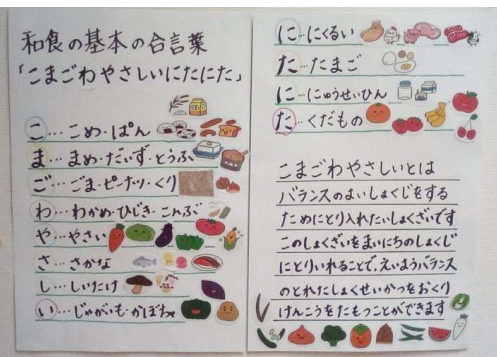 和食の基本の合言葉
「こまごわやさしいにたにた」
こ…こめ・ぱん
ま…まめ・だいず・とうふ
ご…ごま・ピーナッツ・くり
わ…わかめ・ひじき・こんぶ
や…やさい
さ…さかな
し…しいたけ
い…じゃがいも・かぼちゃ
に…にくるい
た…たまご
に…にゅうせいひん
た…くだもの
こまごわやさしいとは
バランスのよいしょくじをする
ためにとり入れたいしょくざいです
このしょくざいをまいにちのしょくじ
にとりいれることで、えいようバランス
のとれたしょくせいかつをおくり
けんこうをたもつことができます